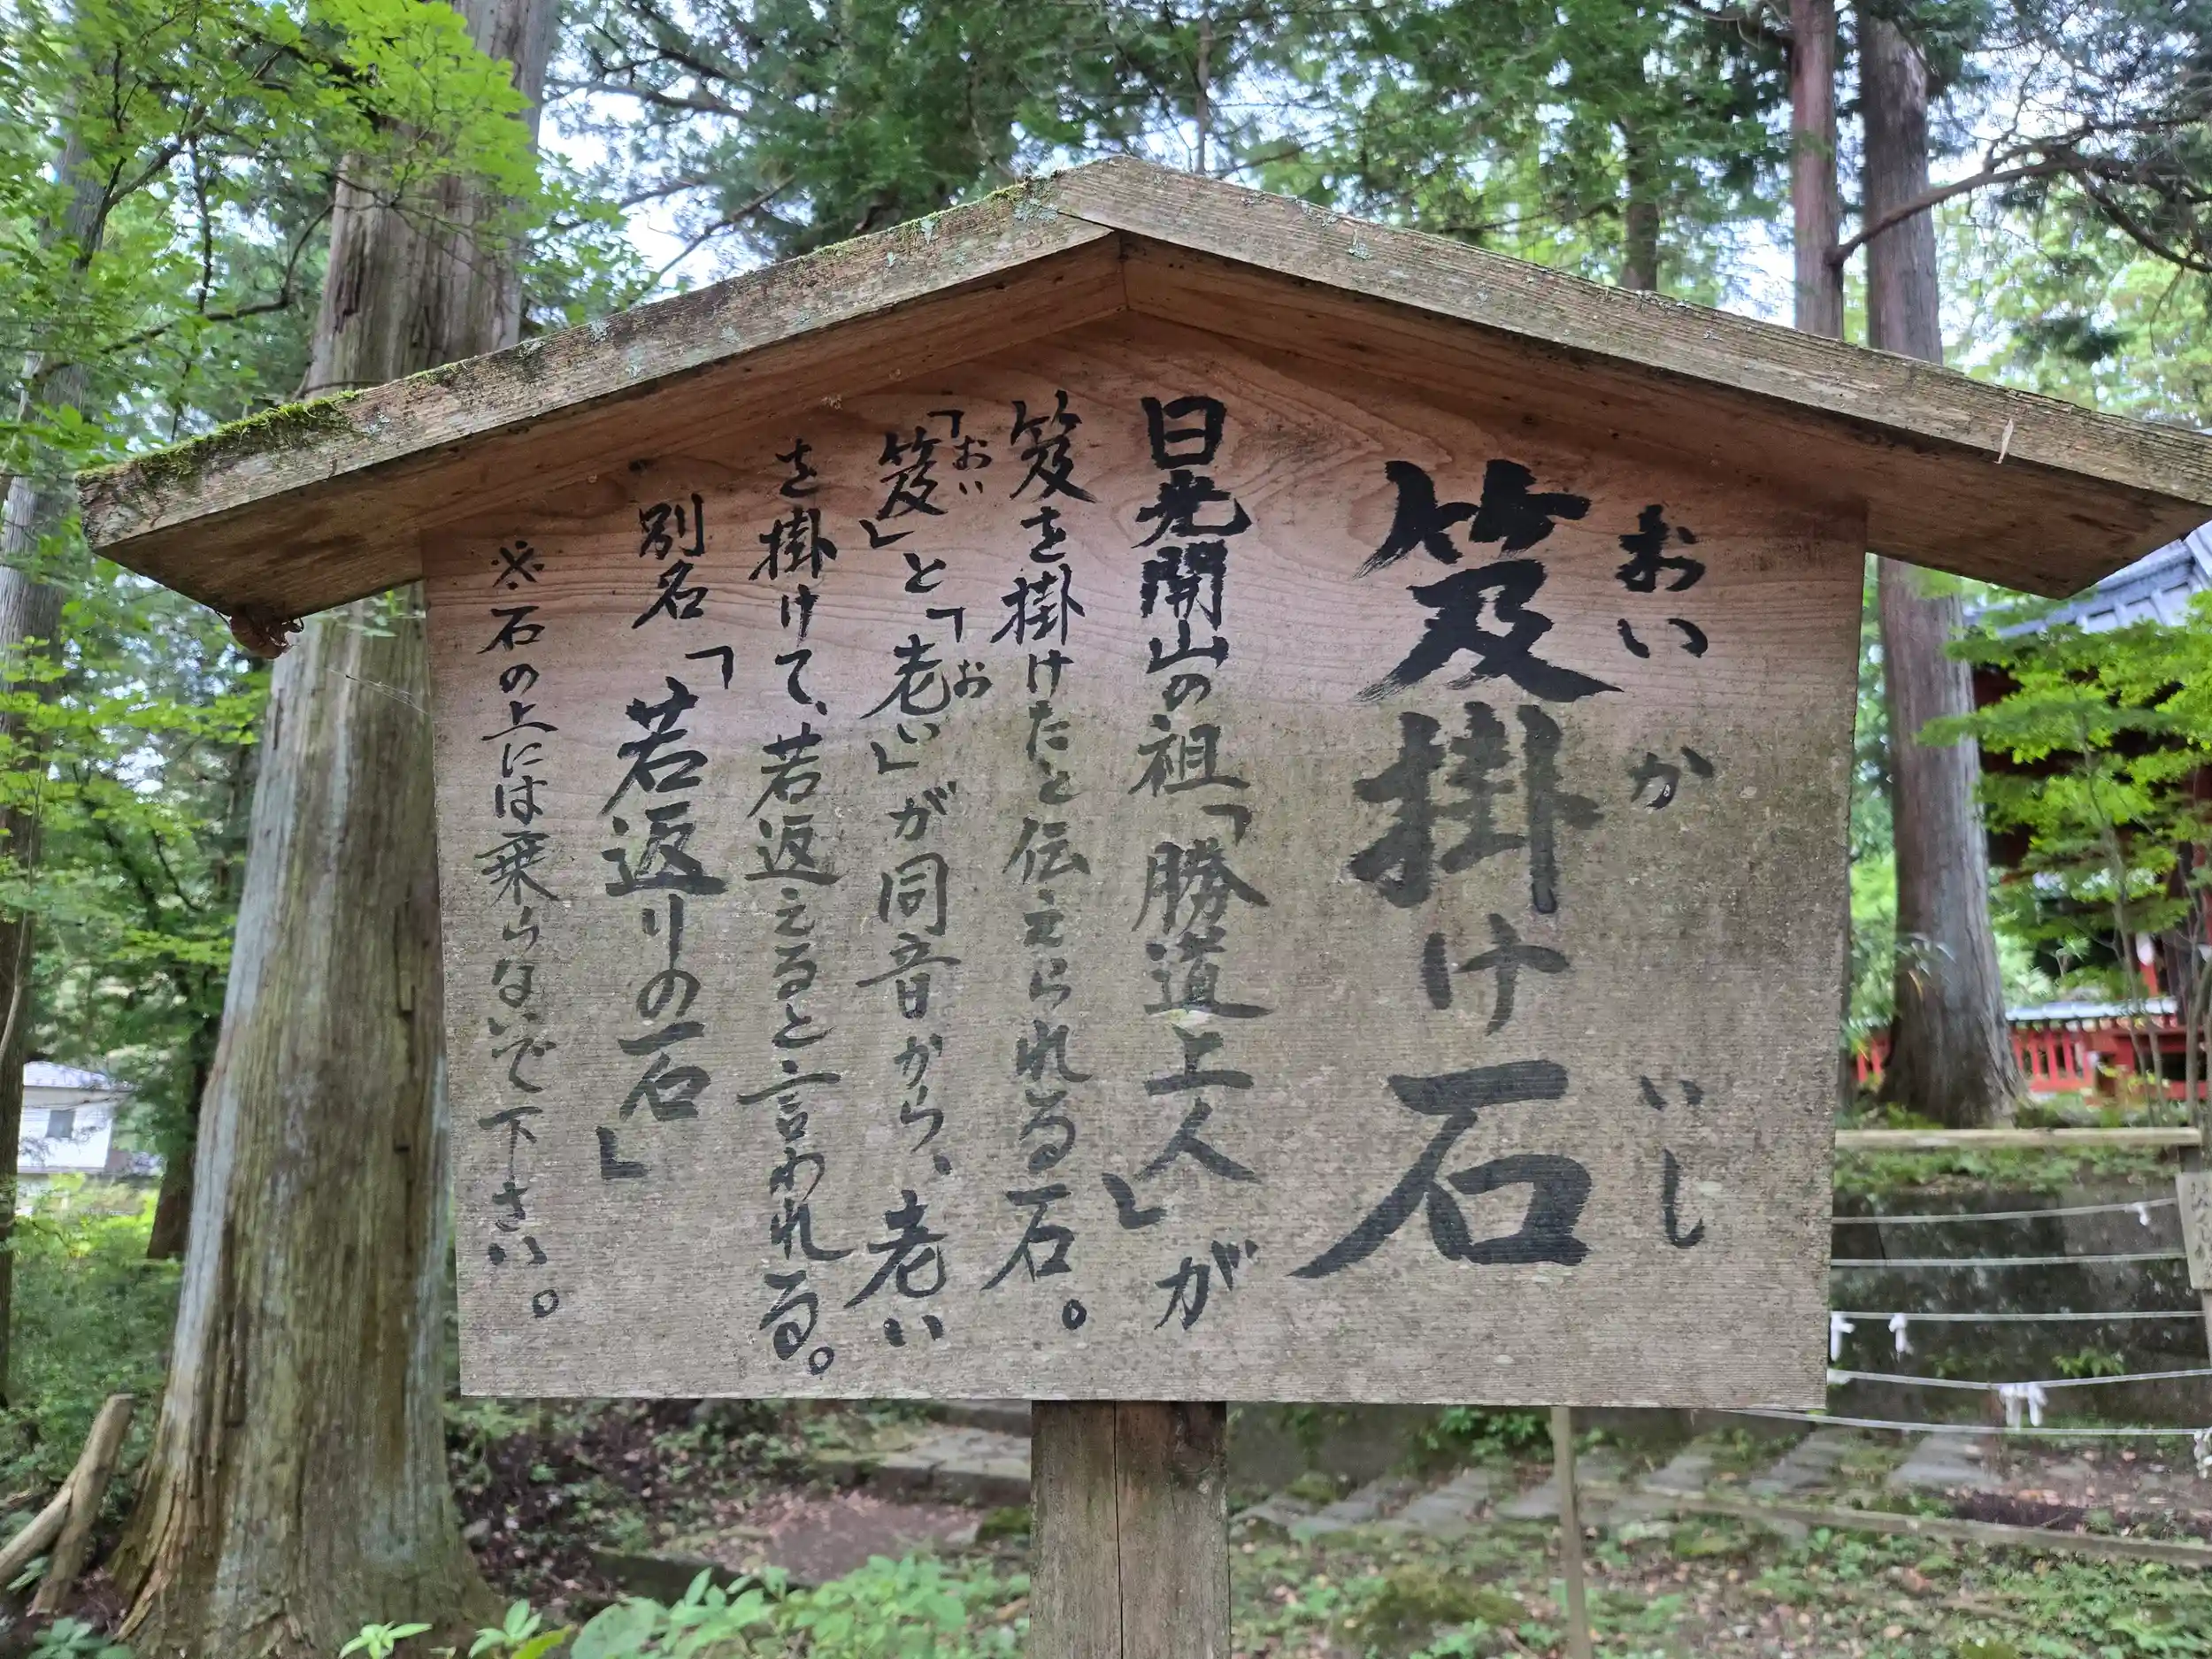 おいかいし
笈掛け石
日光開山の祖「勝道上人」が
笈を掛けたと伝えられる石。
おい お
「笈」と「老い」が同音から、老い
を掛けて、若返えると言われる。
別名「若返りの石」
※石の上には乗らないで下さい。